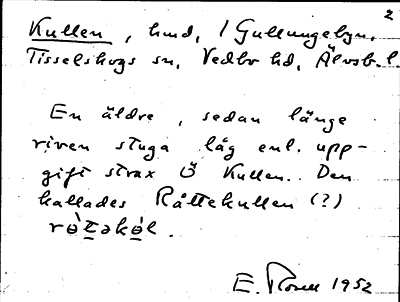 2
Kullen, hmd, / Gullungebyn,
Tisselskogs sn, Vedbo hd, Älvsb. l.
En äldre, sedan länge
riven stuga låg enl. upp-
gift strax Ö Kullen. Den
kallades Råttekullen (?)
E. Rosell 1952